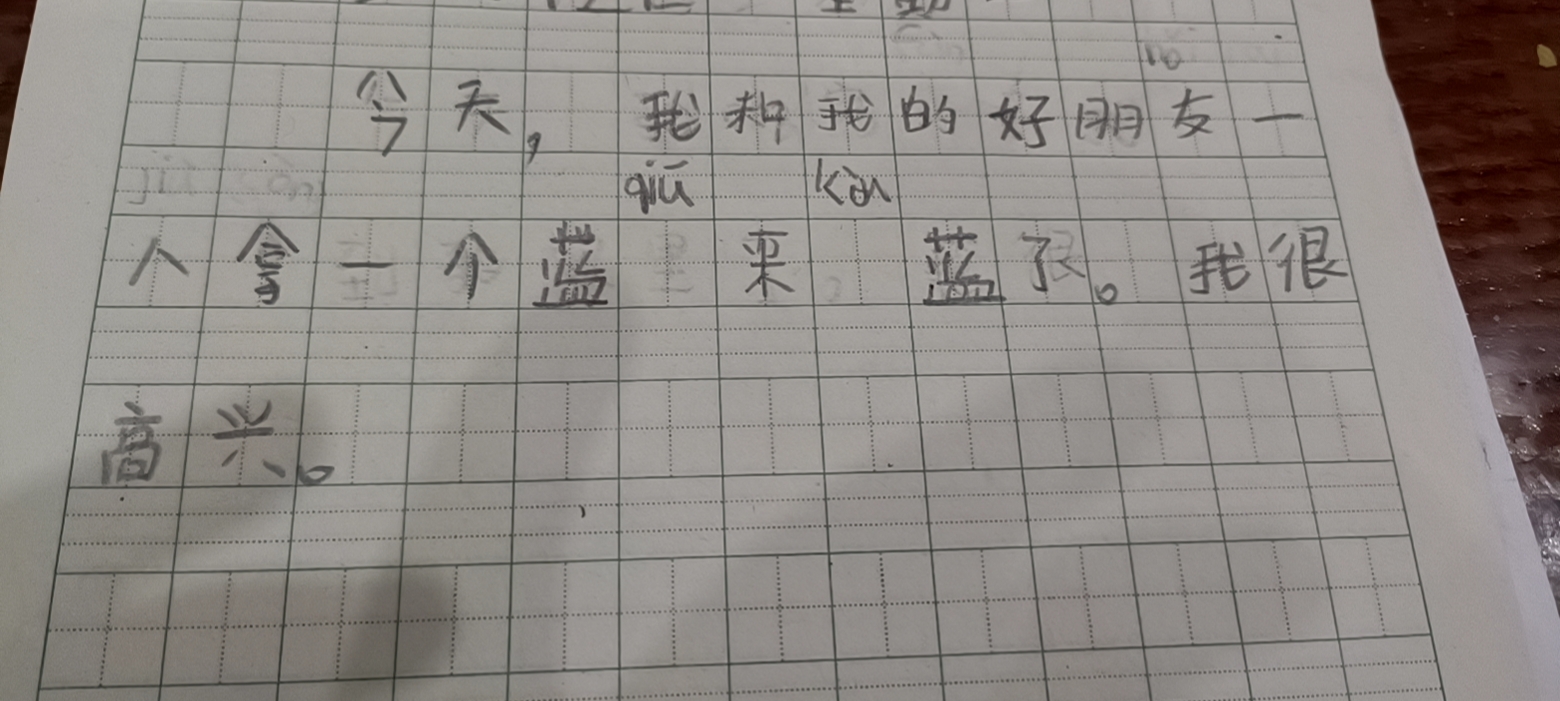 今天，我和我的好朋友一
qiū kàn
人拿一个蓝 来 蓝了。我很
高兴。